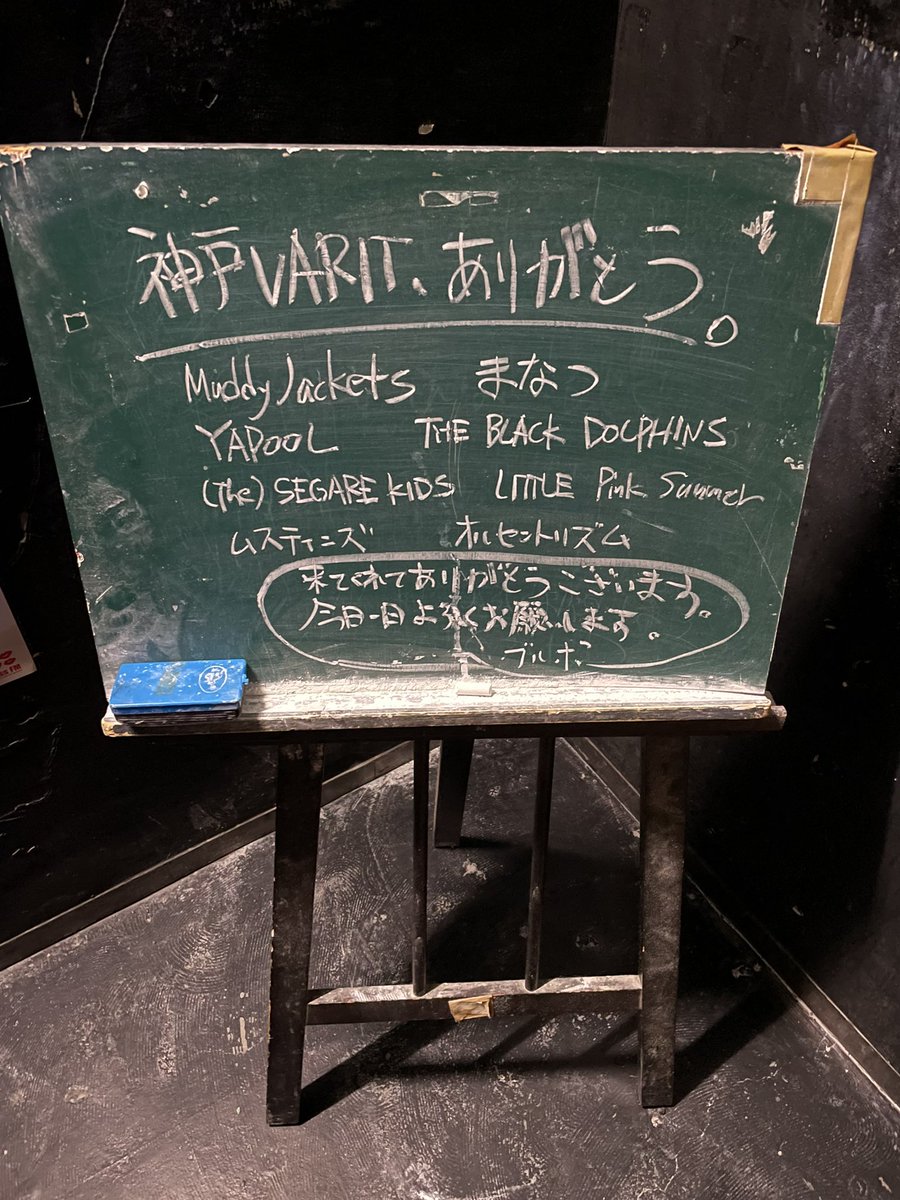 神戸VARIT、ありがとう。
Muddy Jackets まなつ
YAPOOL THE BLACK DOLPHINS
(The) SEGARE KIDS LITTLE Pink Summer
ムスティニズ オルセントリズム
来てくれてありがとうございます。
今日一日よろしくお願いします。
ブルボ